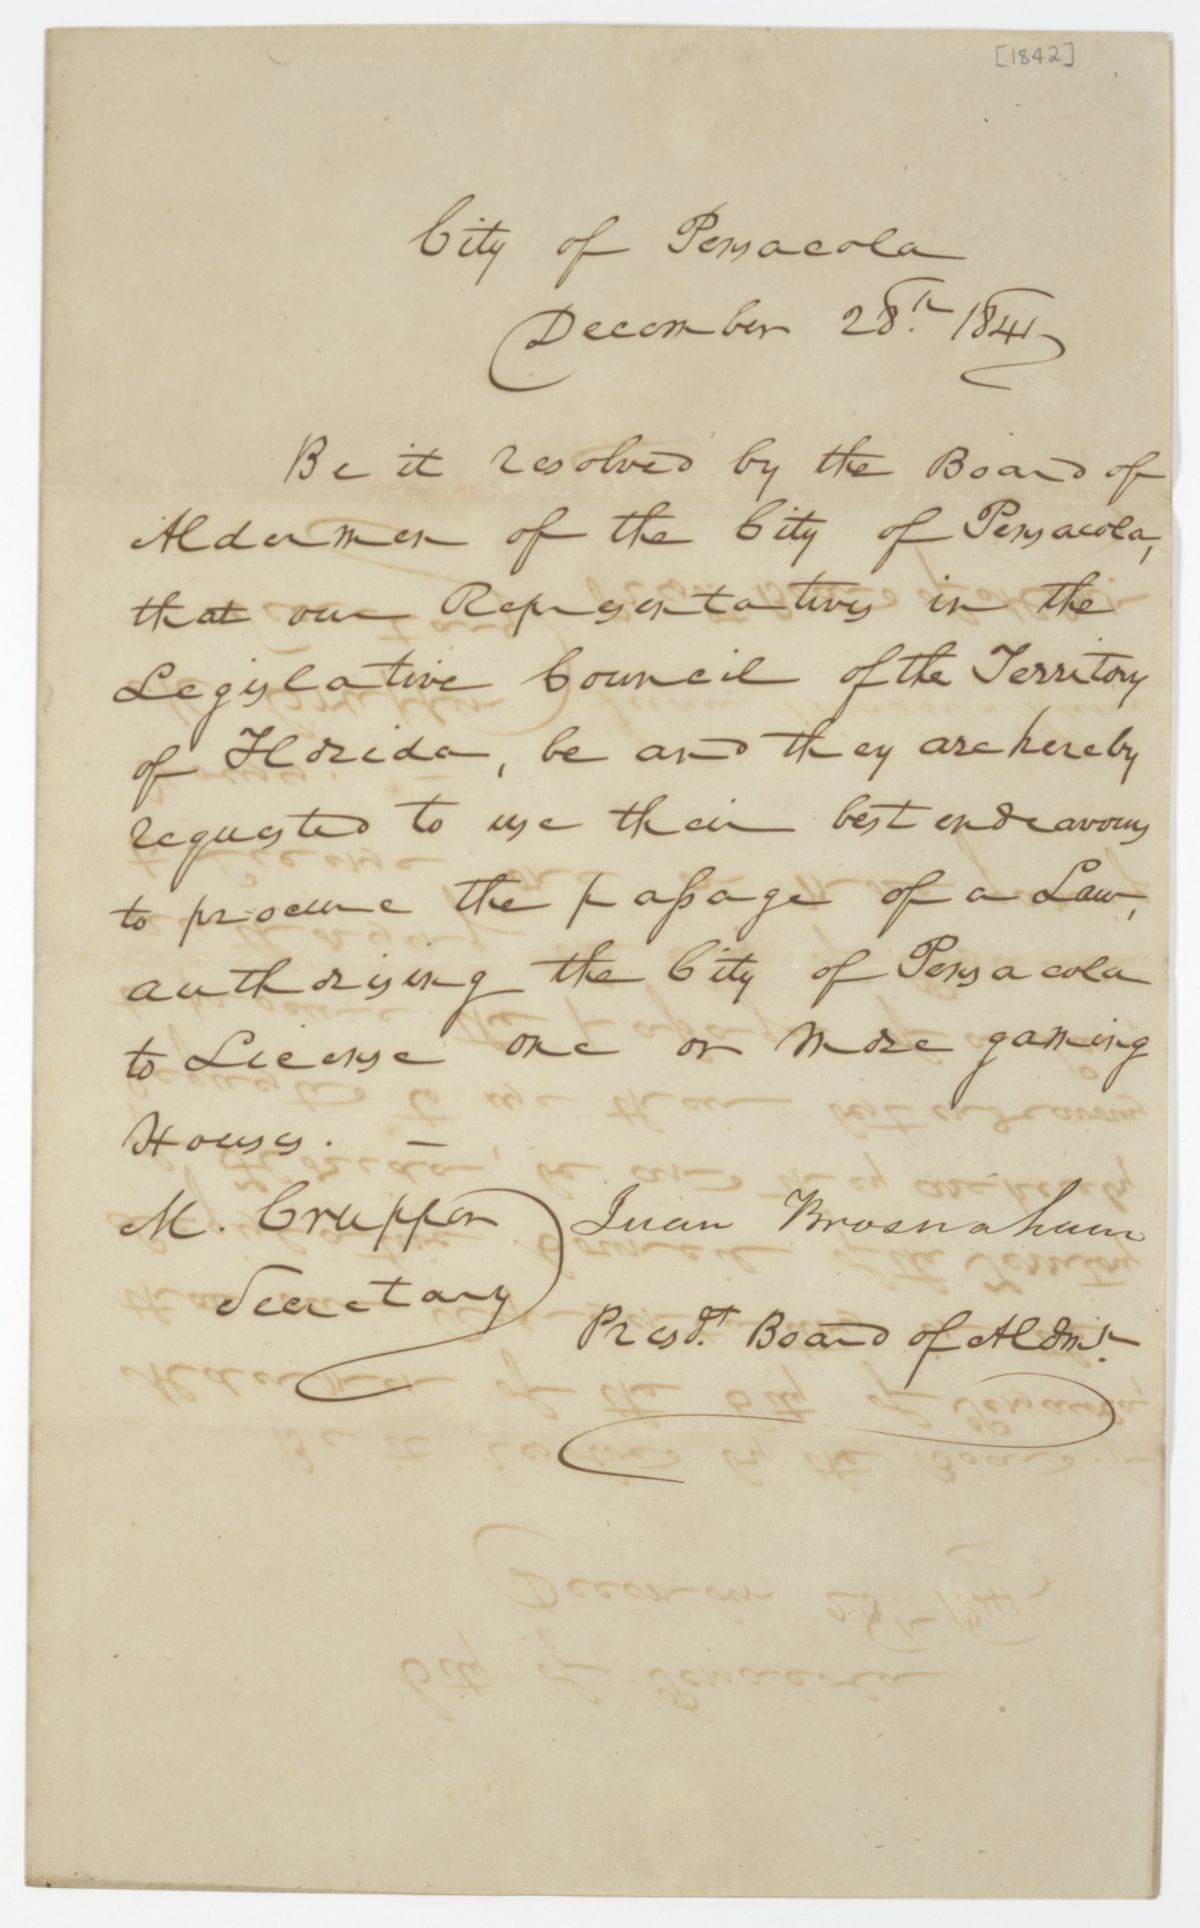 [1842]
City of Pensacola
December 28.th 1841
Be it resolved by the Board of
Aldermen of the City of Pensacola,
that our Representatives in the
Legislative Council of the Territory
of Florida, be and they are hereby
requested to use their best endeavours
to procure the passage of a Law,
authorising the City of Pensacola
to License one or more gaming
Houses. —
M. Crupper Juan Brosnaham
Secretary
Presdt. Board of Aldmn.